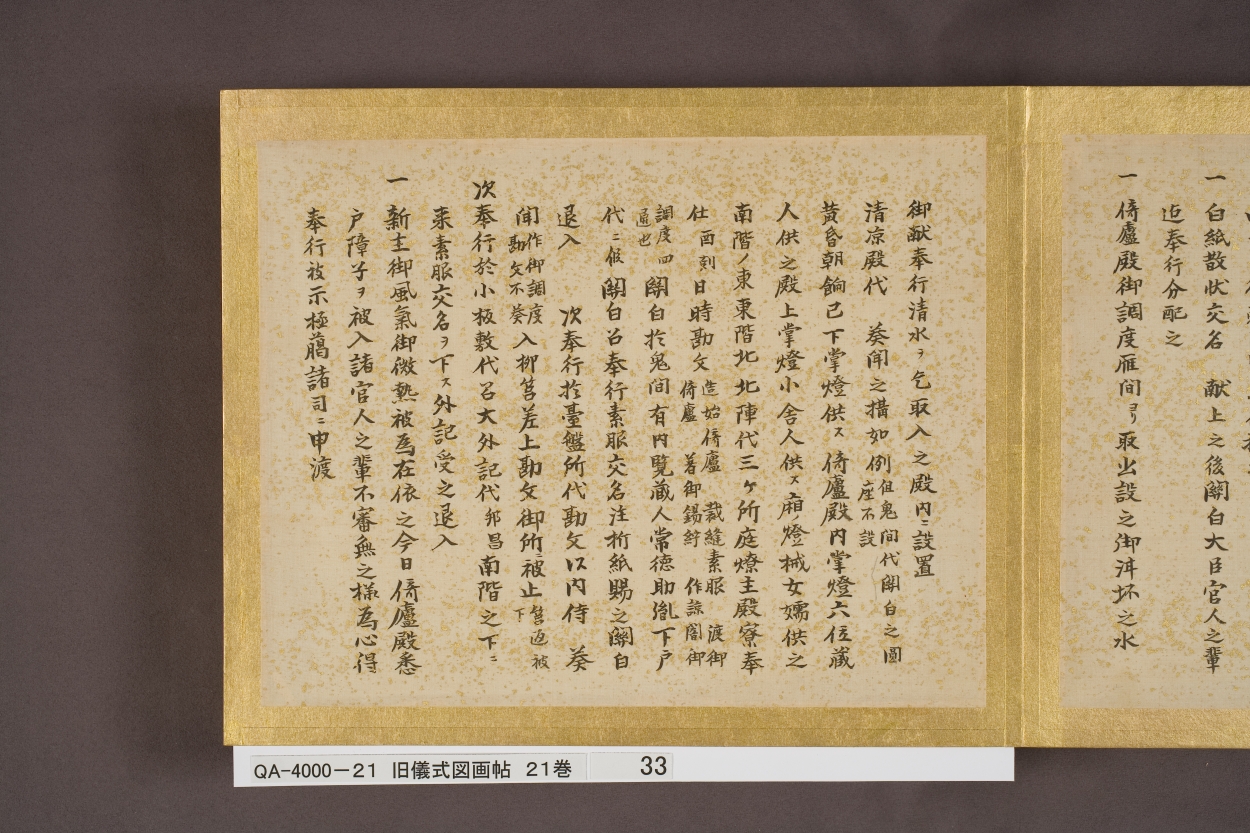 一白紙散状交名　献上之後關白大臣官人之輩
迠奉行分配之
一倚廬殿御調度雁间ヨリ取出設之御洱坏之水
御献奉行清水ヲ乞取入之殿内ニ設置
清凉殿代　葵闻之搆如例但鬼间代關白之圓座不設
黄昏朝餉已下掌燈供ス倚廬殿内掌燈六位蔵
人供之殿上掌燈小舎人供ス廂ノ燈械女嬬供之
南階ノ東東階北北陣代三ヶ所庭燎主殿寮奉
仕酉刻日時勘文造始倚廬　裁縫素服　渡御倚廬　著御錫紵　作諒闇御
調度四通也關白於鬼间有内覧蔵人常徳助胤下戸
代ニ候關白召奉行素服交名注折紙賜之關白
退入　次奉行於臺盤所代勘文以内侍　葵
闻作御調度勘文不葵入柳筥差上勘文御所ニ被止筥返被下
次奉行於小板敷代召大外記代邦昌南階之下ニ
来素服交名ヲ下ス外記受之退入
一新主御風氣御微熱被為在依之今日倚廬殿悉
戸障子ヲ被入諸官人之輩不審無之様為心得
奉行被示極﨟諸司ニ申渡
QA-4000－21　旧儀式図画帖　21巻　33